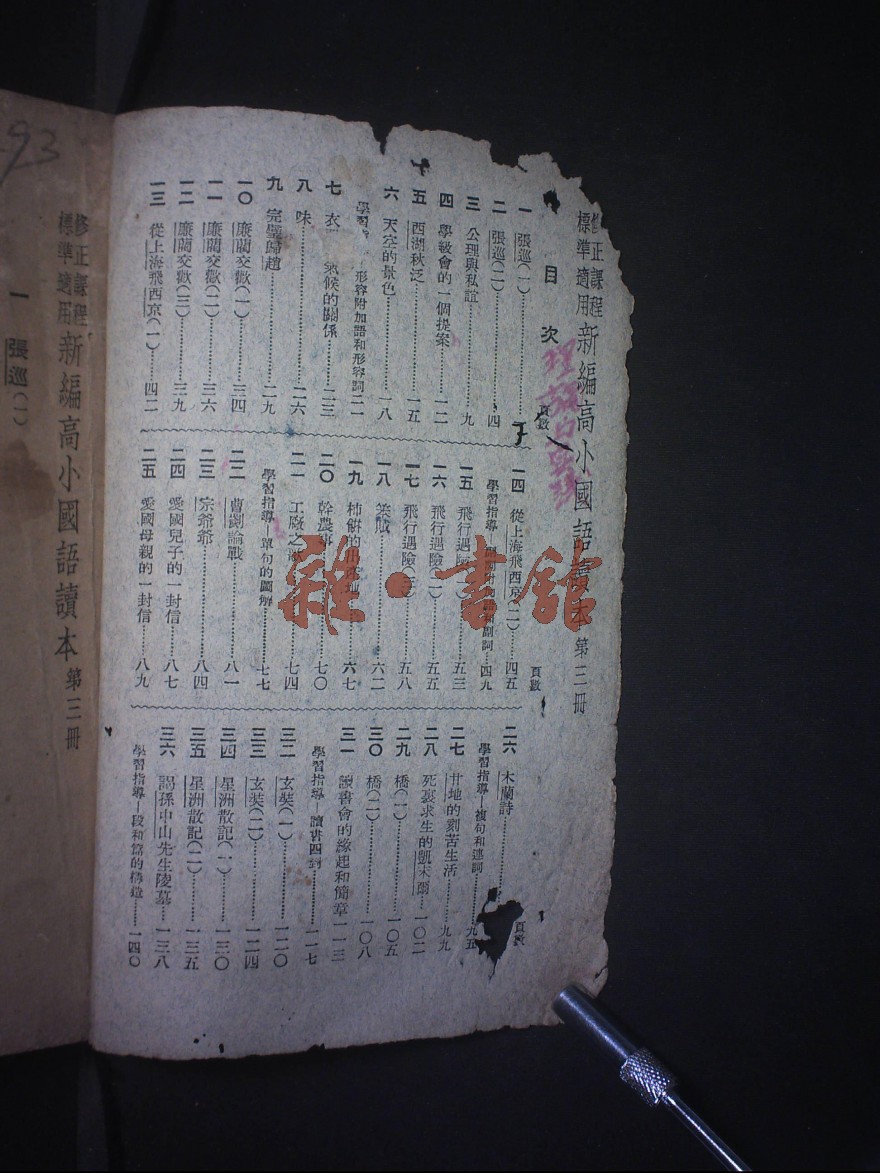 修正課程
標準適用
新編高小國語讀本 第三冊
目次
頁數
一 張巡(一)
二 張巡(二)……四
三 公理與私誼……九
四 學級會的一個提案……一二
五 西湖秋泛……一五
六 天空的景色……一八
學習 形容附加語和形容詞 二一
七 衣 氣候的關係……二三
八 味……二六
九 完璧歸趙……二九
一〇 廉藺交歡(一)……三四
一一 廉藺交歡(二)……三六
一二 廉藺交歡(三)……三九
一三 從上海飛西京(一)……四二
頁數
一四 從上海飛西京(二)……四五
學習指導 副詞……四九
一五 飛行遇險……五三
一六 飛行遇險(二)……五五
一七 飛行遇險……五八
一八 築……六二
一九 柿餅的 地……六七
二〇 幹農事……七〇
二一 工廠之……七四
學習指導—單句的圖解……七七
二二 曹劌論戰……八一
二三 宗爺爺……八四
二四 愛國兒子的一封信……八七
二五 愛國母親的一封信……八九
頁數
二六 木蘭詩……
學習指導—複句和連詞……九五
二七 甘地的刻苦生活……九九
二八 死裏求生的凱末爾……一〇二
二九 橋(一)……一〇五
三〇 橋(二)……一〇八
三一 讀書會的緣起和簡章……一一三
學習指導—讀書四到……一一七
三二 玄奘(一)……一二〇
三三 玄奘(二)……一二四
三四 星洲散記(一)……一三〇
三五 星洲散記(二)……一三五
三六 謁孫中山先生陵墓……一三八
學習指導—段和篇的構造……一四〇
修正課程
標準適用
新編高小國語讀本 第三冊
一 張巡(一)
93
雜·書館